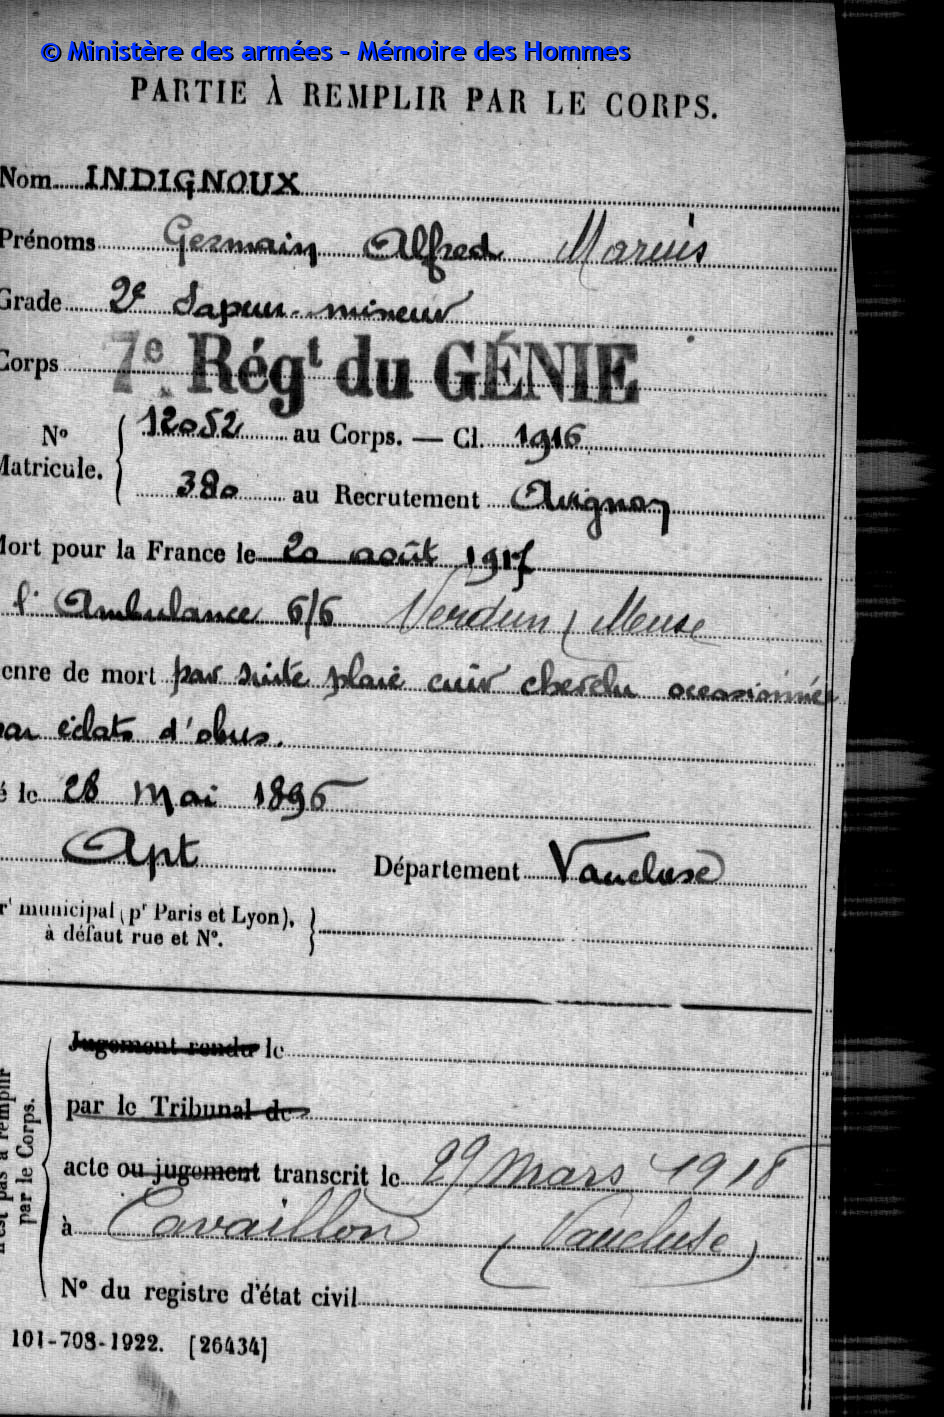 © Ministère des armées - Mémoire des Hommes
PARTIE À REMPLIR PAR LE CORPS.
Nom INDIGNOUX
Prénoms Germain Alfred Marius
Grade 2e Sapeur-mineur
Corps 7e Régt du GÉNIE
No 12052 au Corps. — Cl. 1916
Matricule. 380 au Recrutement Avignon
Mort pour la France le 20 août 1917
l'Ambulance 6/6 Verdun (Meuse
enre de mort par suite plaie cuir chevelu occasionnée
par éclats d'obus.
é le 28 Mai 1896
Apt Département Vaucluse
rt municipal (pr Paris et Lyon),
à défaut rue et No.
Jugement rendu le
par le Tribunal de
acte ou jugement transcrit le 29 mars 1918
à Cavaillon (Vaucluse)
No du registre d'état civil
n'est pas à remplir
par le Corps.
101-708-1922. [26434]